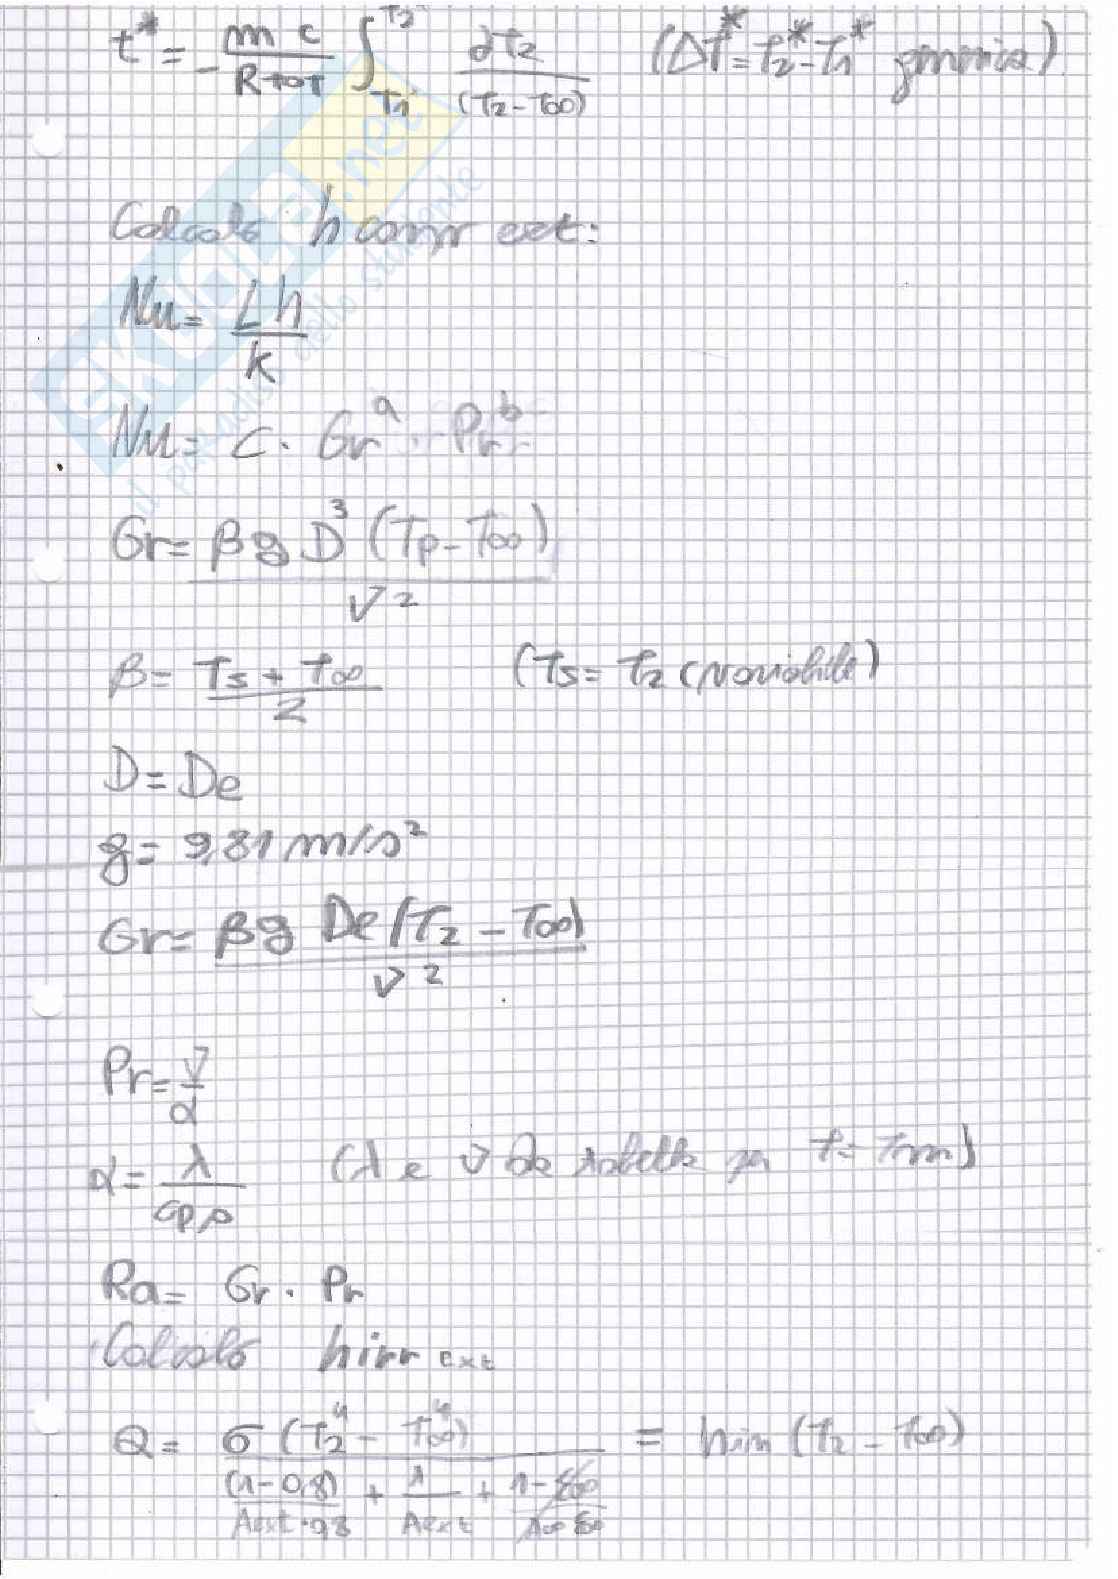 t* = - m c / R TOT ∫ T1 T2 dT2 / (T2 - T∞) (ΔT* = T2* - T1* generica)
Calcolo h conv ext:
Nu = L h / k
Nu = C · Gr^a · Pr^b
Gr = β g D³ (Tp - T∞) / ν²
β = Ts + T∞ / 2 (Ts = T2 (variabile)
D = De
g = 9,81 m/s²
Gr = β g De (T2 - T∞) / ν²
Pr = ν / α
α = λ / cp ρ (λ e ν da tabelle per t = Tm)
Ra = Gr · Pr
Calcolo hirr ext
Q = σ (T2⁴ - T∞⁴) / (1 - 0,8) / Aext · 0,8 + 1 / Aext + 1 - ε∞ / A∞ ε∞ = hirr (T2 - T∞)
SKUOLA.net
il paradiso dello studente